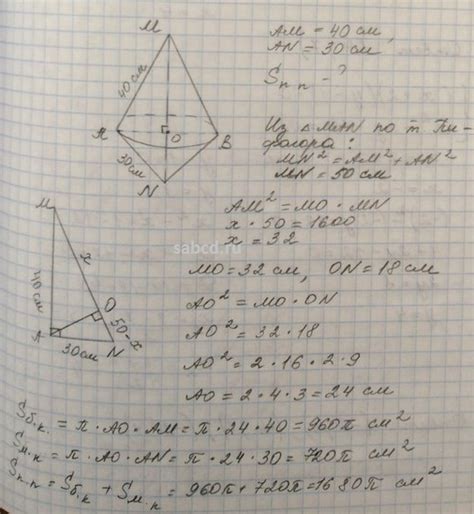 M
40 см
A
O
B
30см
N
AM = 40 см,
AN = 30 см
Sп п - ?
Из △ MAN по т. Пи-
фагора:
MN² = AM² + AN²
MN = 50 см
AM² = MO · MN
x · 50 = 1600
x = 32
sabcd.ru
MO = 32 см, ON = 18 см
AO² = MO · ON
AO² = 32 · 18
AO² = 2 · 16 · 2 · 9
AO = 2 · 4 · 3 = 24 см
M
x
40 см
O
50-x
A
30см N
Sб.к. = π · AO · AM = π · 24 · 40 = 960π см²
Sм.к = π · AO · AN = π · 24 · 30 = 720π см²
Sп.п = Sб.к + Sм к = 960π + 720π = 1680π см²